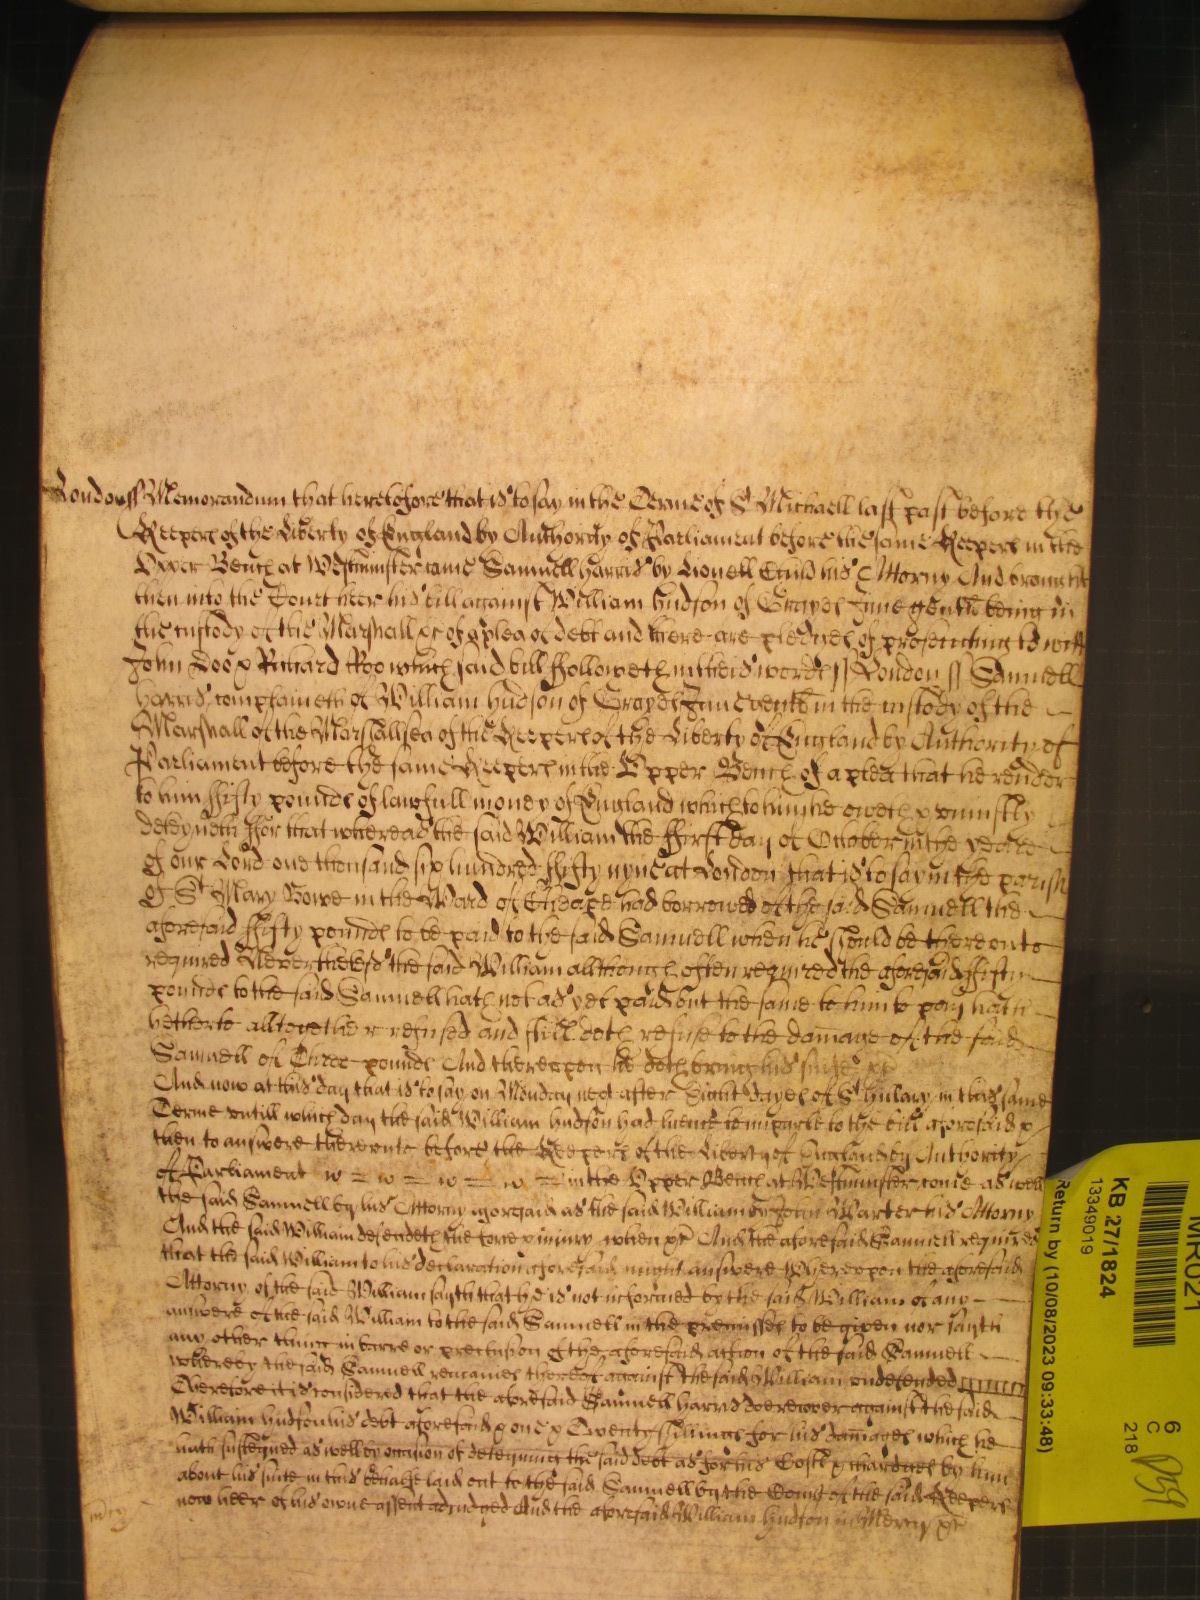 London ss Memorandum that heretofore that is to say in the Terme of St Michaell last past before the
Keepers of the Liberty of England by Authority of Parliament before the same Keepers in the
Vpper Bench at Westminster came Samuell Harris by Lionell Child his Attorny And brought
then into the Court heer his bill against William Hudson of Grayes Inne gentl being in
the custody of the Marshall &c of a plea of debt and there are pledges of prosecuting to witt
John Doo & Richard Roo which said bill ffolloweth in theis words ss London ss Samuell
Harris complaineth of William Hudson of Grayes Inne gentl in the custody of the
Marshall of the Marshallsea of the Keepers of the Liberty of England by Authority of
Parliament before the same Keepers in the Vpper Bench of a plea that he render
to him ffifty pounds of lawfull money of England which to him he oweth & vniustly
deteyneth ffor that whereas the said William the ffirst day of October in the yeare
of our Lord one thousand six hundred ffifty nyne at London that is to say in the parish
of St Mary Bowe in the Ward of Cheape had borrowed of the said Samuell the
aforesaid ffifty pounds to be paid to the said Samuell when he should be therevnto
required Neverthelesse the said William allthough often required the aforesaid ffifty
pounds to the said Samuell hath not as yet paid but the same to him to pay hath
hetherto alltogether refused and still doth refuse to the damage of the said
Samuell of Three pounds And therevpon he doth bring his suite &c
And now at this day that is to say on Monday next after Eight dayes of St Hillary in this same
Terme vntill which day the said William Hudson had licence to imparle to the bill aforesaid &
then to answere therevnto before the Keepers of the Liberty of England by Authority
of Parliament in the Vpper Bench at Westminster come as well
the said Samuell by his Attorny aforesaid as the said William by John Warter his Attorny
And the said William defendeth the force & iniury when &c And the aforesaid Samuell required
that the said William to his declaration aforesaid might answere Wherevpon the aforesaid
Attorny of the said William sayth that he is not informed by the said William of any
answere of the said William to the said Samuell in the premisses to be given nor sayth
any other thing in barre or preclusion of the aforesaid action of the said Samuell
whereby the said Samuell remaines thereof against the said William vndefended
Therefore it is considered that the aforesaid Samuell Harris doe recover against the said
William Hudson his debt aforesaid & one & Twenty shillings for his damages which he
hath susteyned as well by occasion of deteyning the said debt as for his Costs & chardges by him
about his suite in this behalfe laid out to the said Samuell by the Court of the said Keepers
now heer of his owne assent adiudged And the aforesaid William Hudson in Mercy &c
mercy
KB 27/1824
13349019
Return by (10/08/2023 09:33:48)
6
C
218